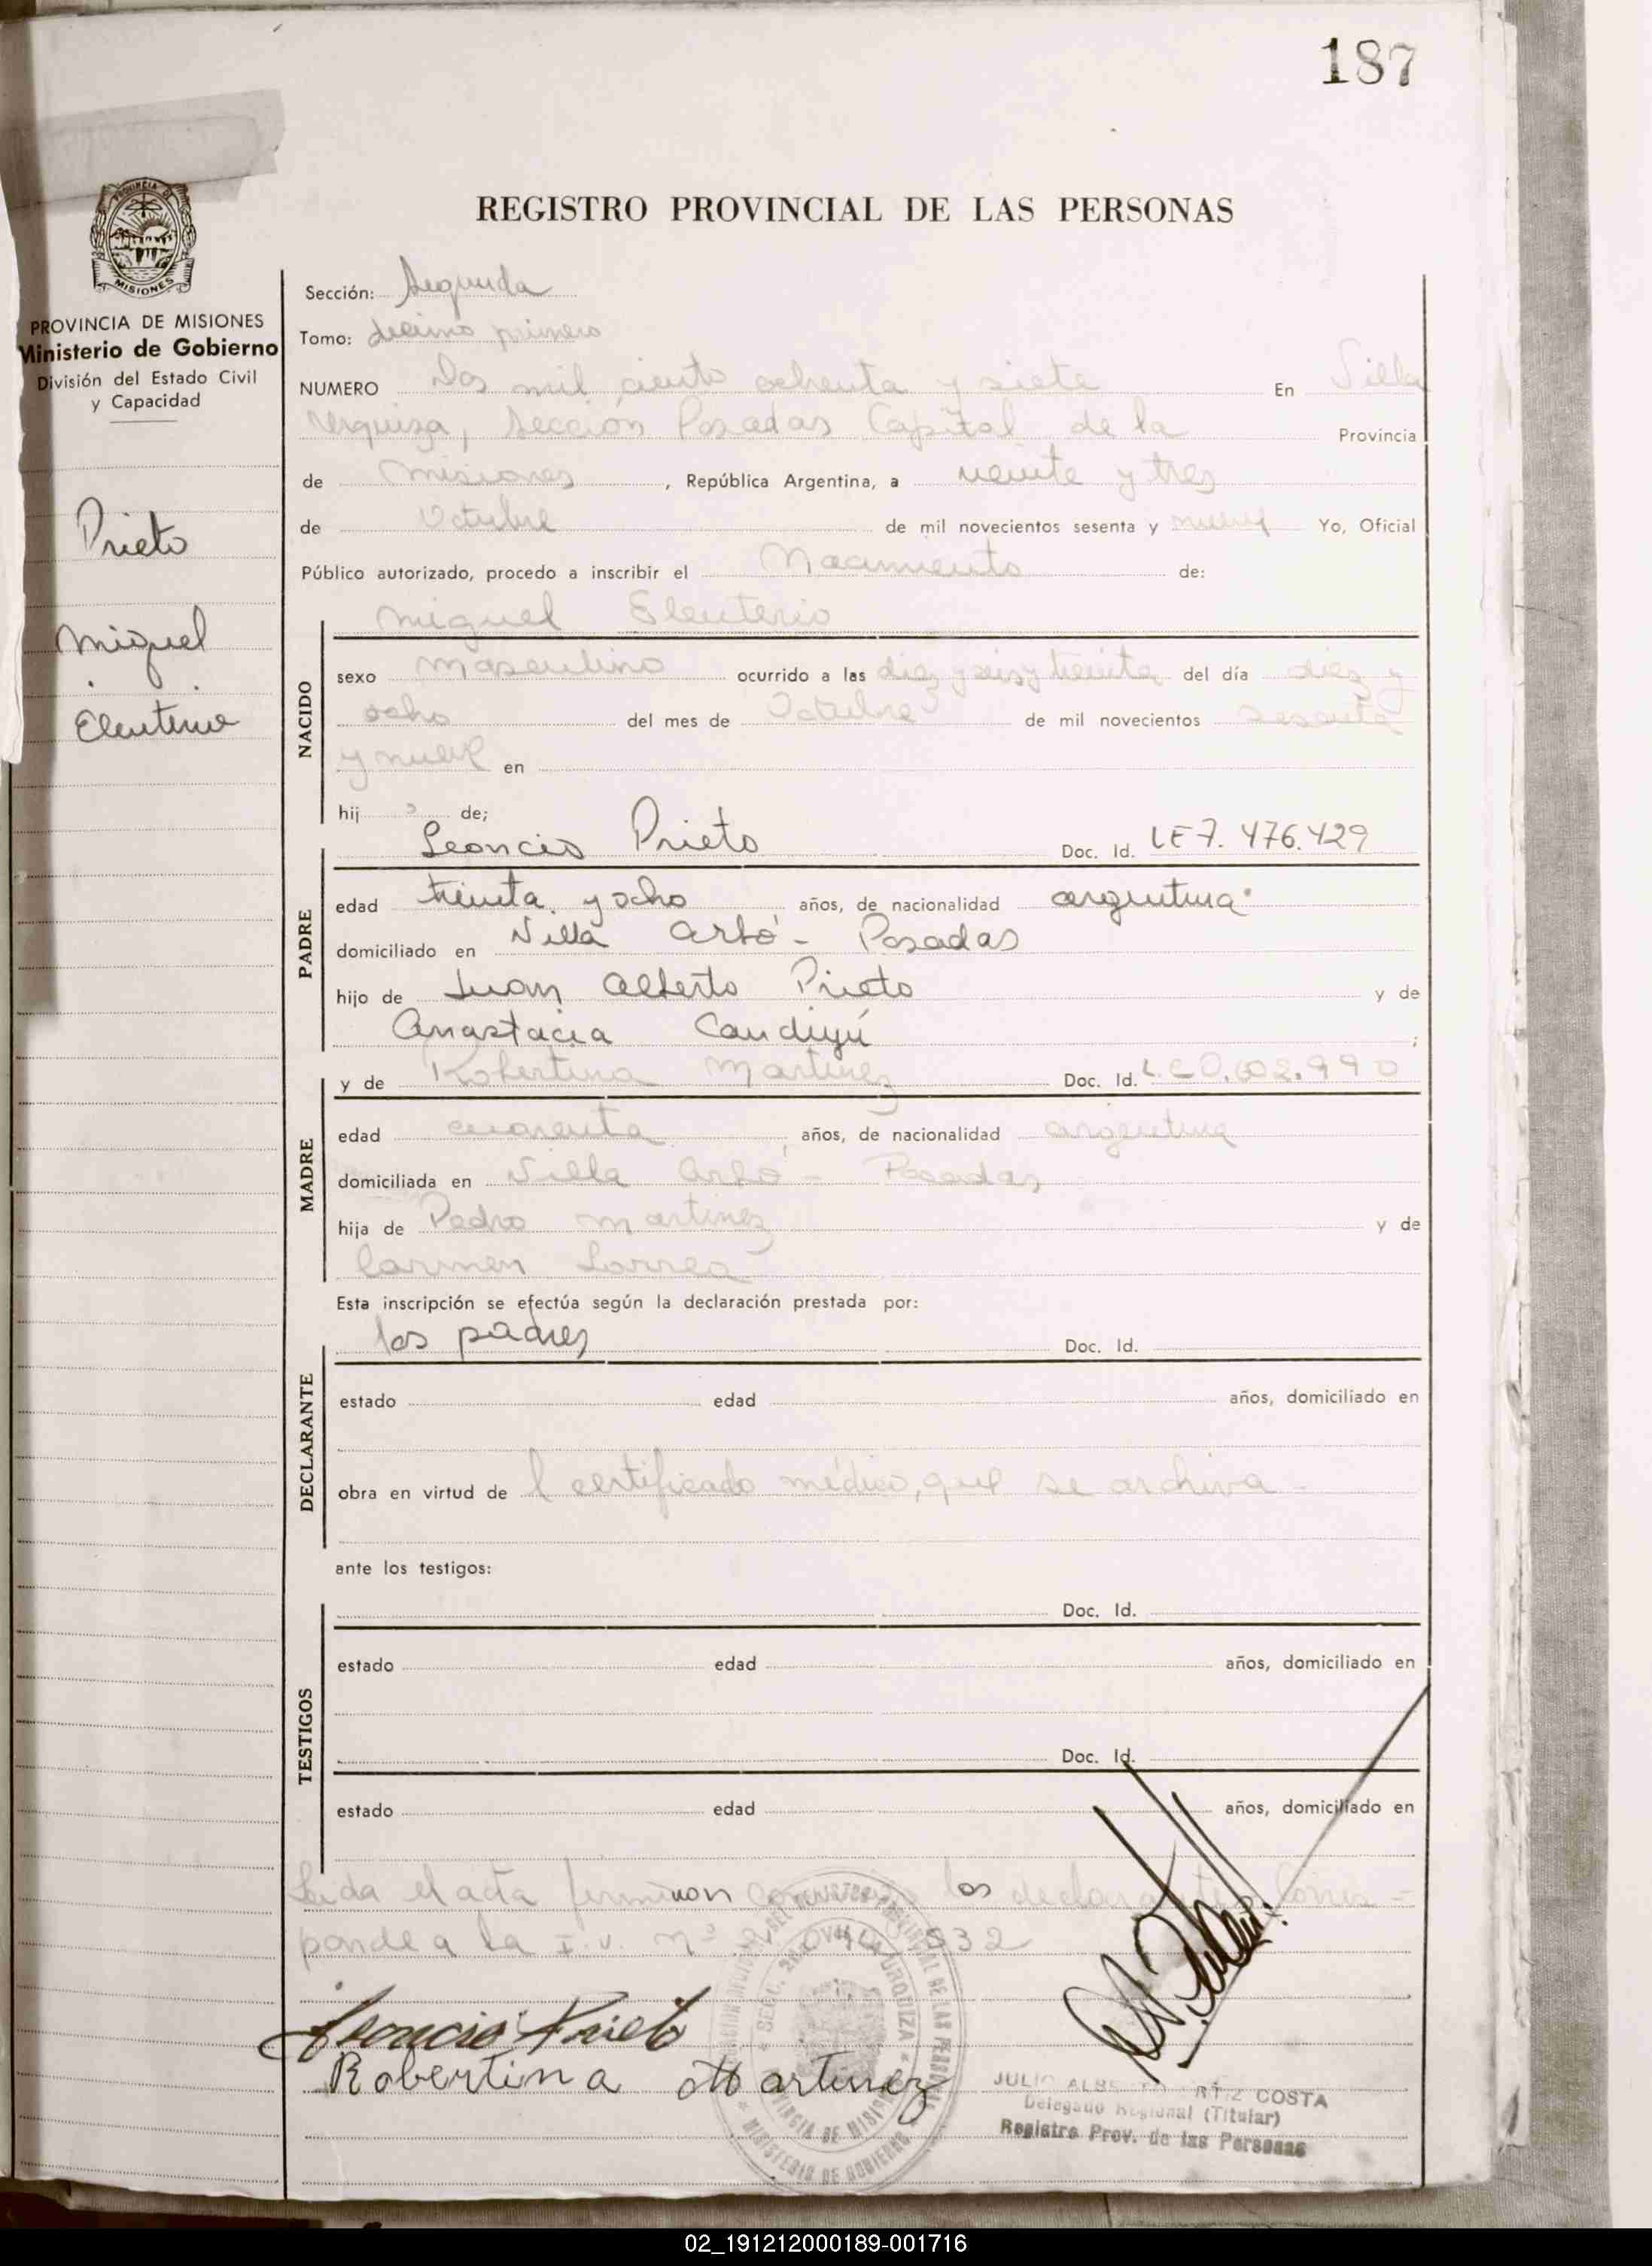 187
REGISTRO PROVINCIAL DE LAS PERSONAS
PROVINCIA DE MISIONES
Ministerio de Gobierno
División del Estado Civil
y Capacidad
Prieto
Miguel
Eleuterio
Sección: Segunda
Tomo: décimo primero
NUMERO Dos mil ciento ochenta y siete En Villa
Urquiza, Sección Posadas Capital de la Provincia
de Misiones, República Argentina, a veinte y tres
de Octubre de mil novecientos sesenta y nueve Yo, Oficial
Público autorizado, procedo a inscribir el Nacimiento de:
Miguel Eleuterio
NACIDO
sexo masculino ocurrido a las diez y seis y treinta del día diez y
ocho del mes de Octubre de mil novecientos sesenta
y nueve en
hijo de;
Leoncio Prieto Doc. Id. LE 7.476.429
PADRE
edad treinta y ocho años, de nacionalidad argentina
domiciliado en Villa Arbó - Posadas
hijo de Juan Alberto Prieto y de
Anastacia Candiyú ;
MADRE
y de Robertina Martinez Doc. Id. L.C 0.602.990
edad cuarenta años, de nacionalidad argentina
domiciliada en Villa Arbó - Posadas
hija de Pedro Martinez y de
Carmen Lorrea
Esta inscripción se efectúa según la declaración prestada por:
los padres Doc. Id.
DECLARANTE
estado edad años, domiciliado en
obra en virtud de l certificado médico, que se archiva -
ante los testigos:
Doc. Id.
TESTIGOS
estado edad años, domiciliado en
Doc. Id.
estado edad años, domiciliado en
Leida el acta firman los declarantes Corres=
ponde a la I.V. nº
Leoncio Prieto
Robertina Martinez
COSTA
Delegado Regional (Titular)
Registro Prov. de las Personas
02_191212000189-001716